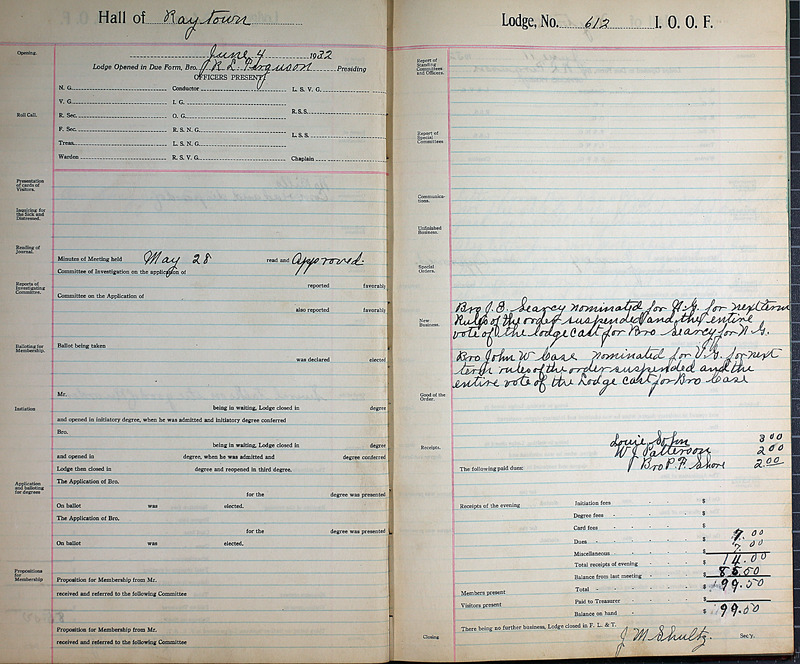 Hall of Raytown
Opening.
June 4 1932
Lodge Opened in Due Form, Bro. J R L. Ferguson Presiding
OFFICERS PRESENT
N. G. Conductor L. S. V. G.
V. G. I. G. R.S.S.
Roll Call.
R. Sec. O. G.
F. Sec. R. S. N. G. L. S. S.
Treas. L. S. N. G.
Warden R. S. V. G. Chaplain
Presentation of cards of Visitors.
Inquiring for the Sick and Distressed.
Reading of Journal.
Minutes of Meeting held May 28 read and Approved.
Committee of Investigation on the application of
Reports of Investigating Committee.
reported favorably
Committee on the Application of
also reported favorably
Balloting for Membership.
Ballot being taken
was declared elected
Mr.
Initiation
being in waiting, Lodge closed in degree
and opened in initiatory degree, when he was admitted and initiatory degree conferred
Bro.
being in waiting, Lodge closed in degree
and opened in degree, when he was admitted and degree conferred
Lodge then closed in degree and reopened in third degree.
Application and balloting for degrees
The Application of Bro.
for the degree was presented
On ballot was elected.
The Application of Bro.
for the degree was presented
On ballot was elected.
Propositions for Membership
Proposition for Membership from Mr.
received and referred to the following Committee
Proposition for Membership from Mr.
received and referred to the following Committee
Lodge, No. 612 I. O. O. F.
Report of Standing Committees and Officers.
Report of Special Committees
Communications.
Unfinished Business.
Special Orders.
New Business.
Bro J. B. Searcy nominated for N.G. for next term
Rules of the order suspended and the entire
vote of the lodge cast for Bro Searcy for N.G.
Bro John W Case nominated for V.G. for next
term rules of the order suspended and the
entire vote of the Lodge cast for Bro Case
Good of the Order.
Receipts.
Louie Sohn 3 00
W J Patterson 2 00
The following paid dues: Bro P. F. Shore 2.00
Receipts of the evening Initiation fees $
Degree fees $
Card fees $
Dues $ 7.00
Miscellaneous $ 7.00
Total receipts of evening $ 14.00
Balance from last meeting $ 85.50
Members present Total $ 99.50
Visitors present Paid to Treasurer $
Balance on hand $ 99.50
There being no further business, Lodge closed in F. L. & T.
Closing J M Shultz. Sec'y.